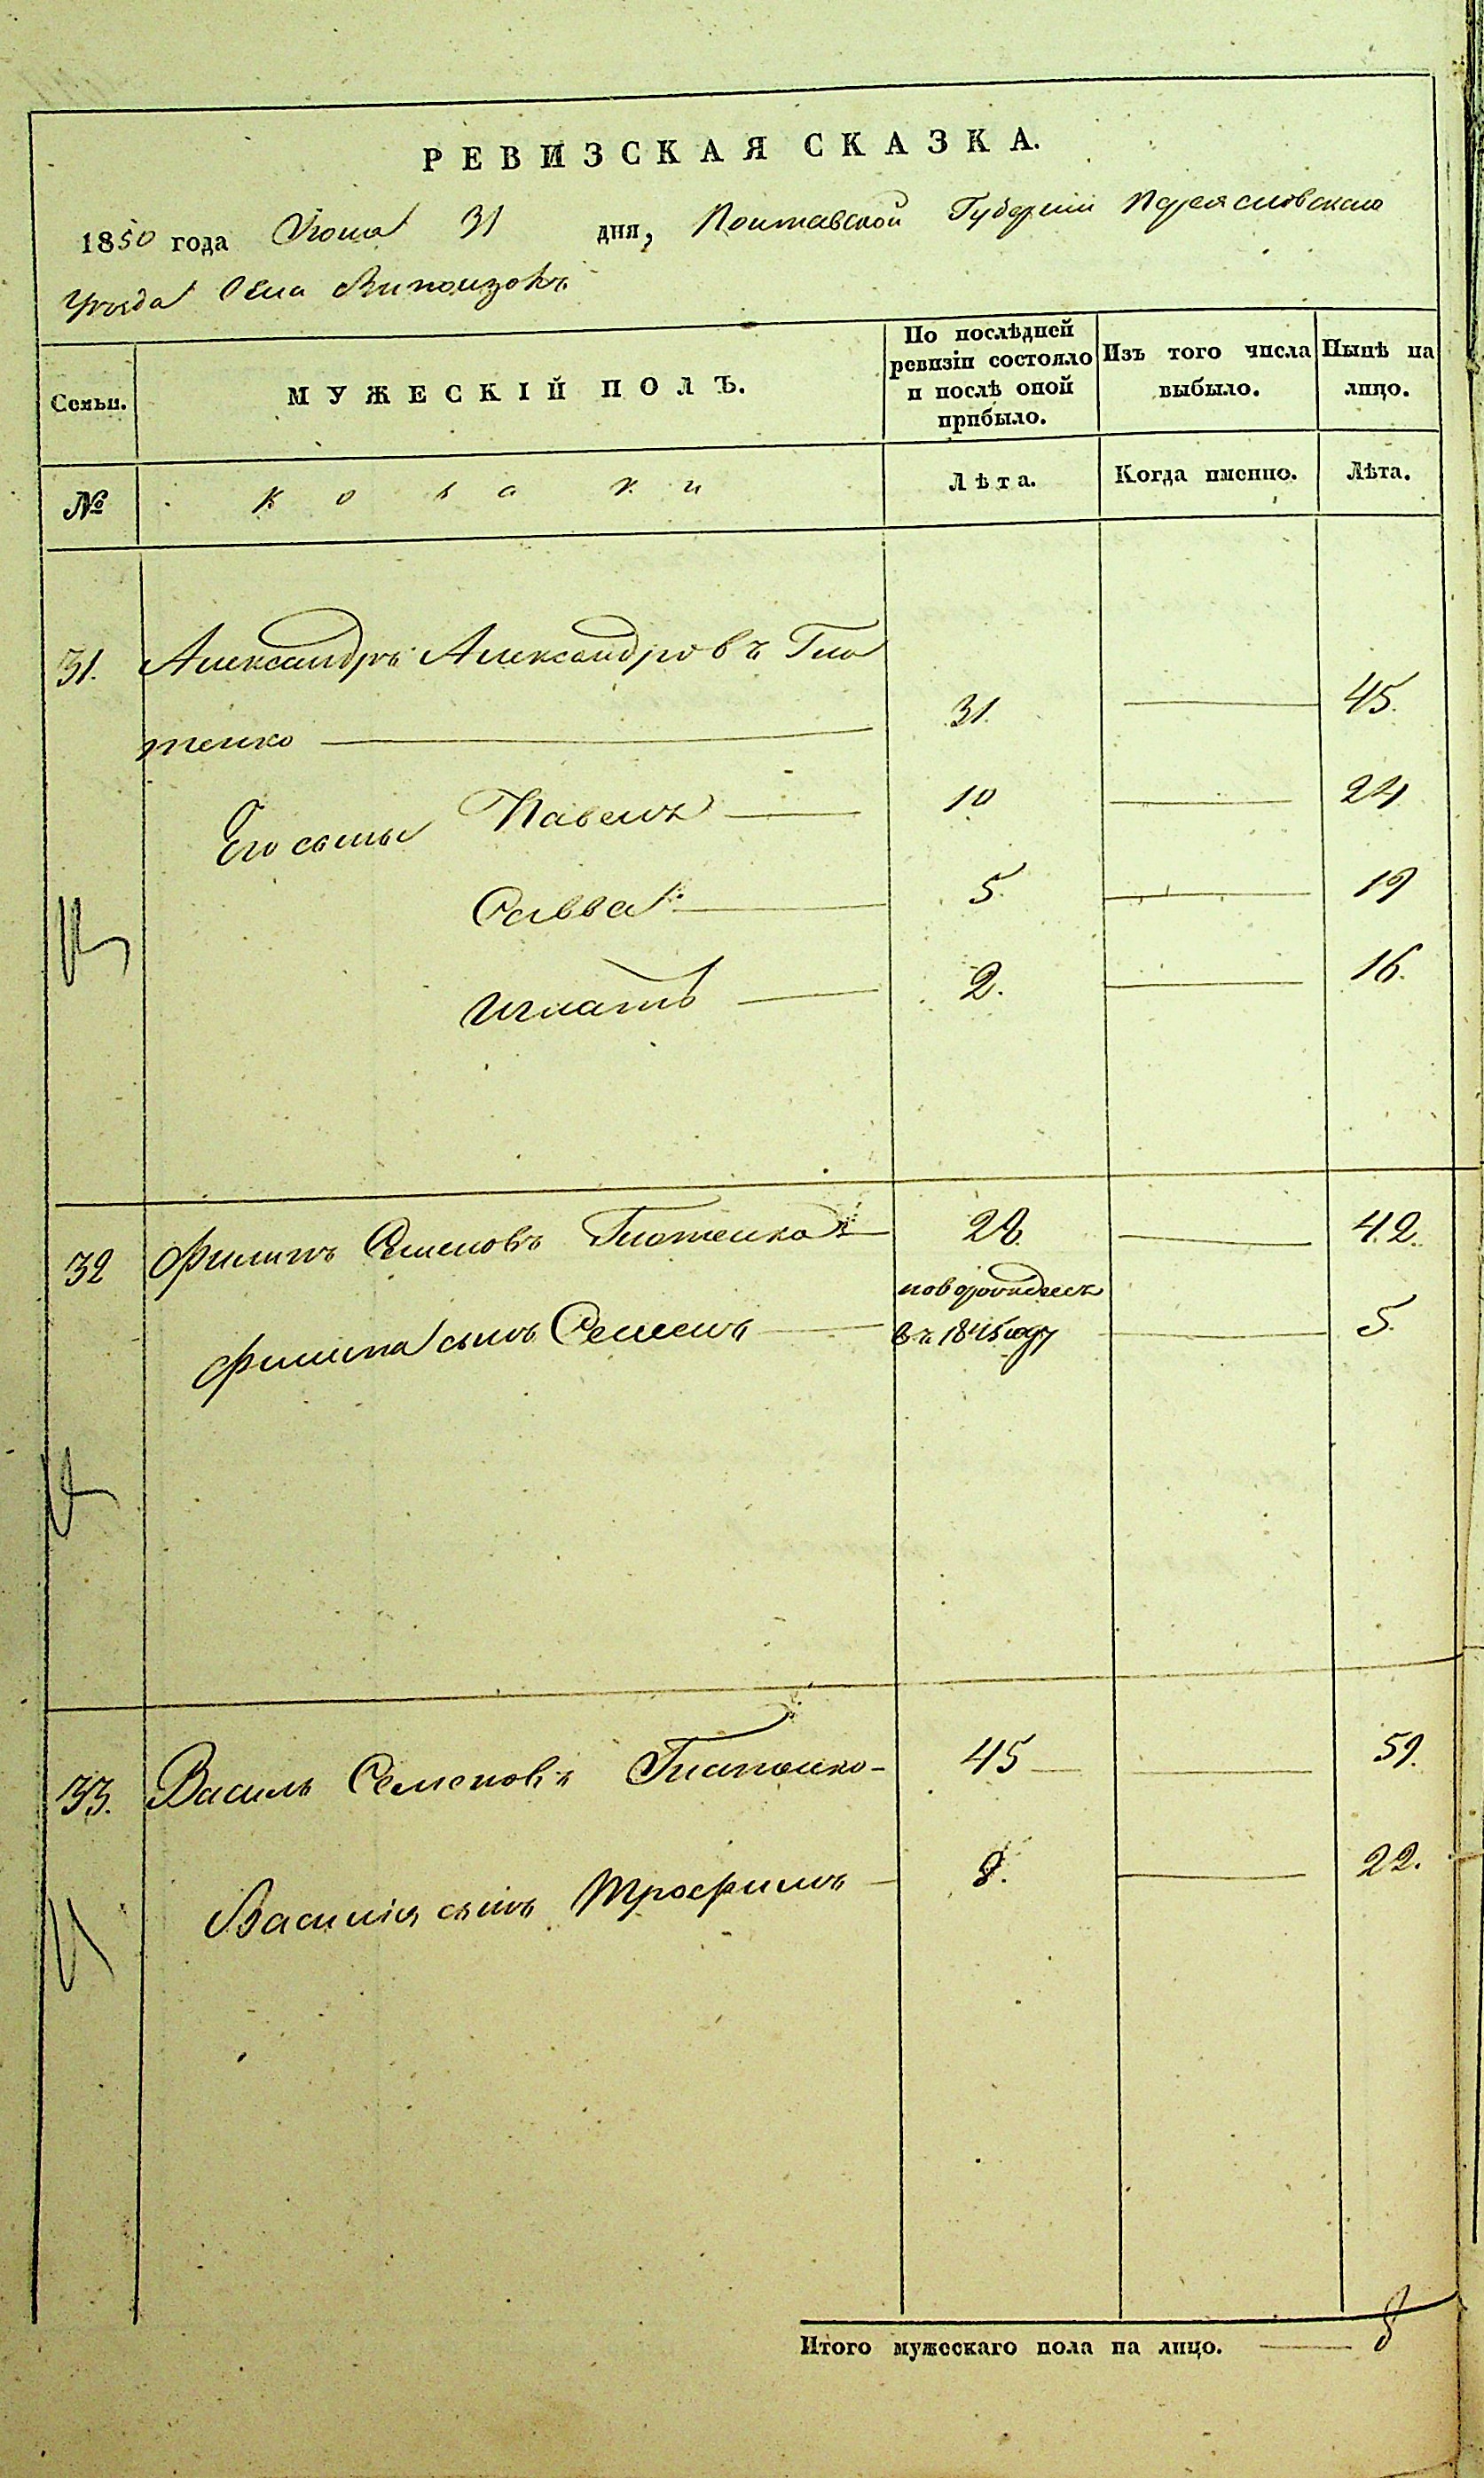 РЕВИЗСКАЯ СКАЗКА.
1850 года 31 дня, Полтавской Губерніи Переясловскаго
Уѣзда Села Виползокъ
Семьи. МУЖЕСКІЙ ПОЛЪ. По послѣдней ревизіи состояло и послѣ оной прибыло. Изъ того числа выбыло. Нынѣ на лицо.
№ Козаки Лѣта. Когда именно. Лѣта.
31. Александръ Александровъ
тенко 31. 45.
Его сыны Павелъ 10 24
Савва 5. 19
Игнатъ 2. 16.
32 Филипъ Семеновъ 28 42.
новорожден
Филипа сынъ Семенъ въ 1845 году 5.
33. Василь Семеновъ 45 59.
Василія сынъ Трофимъ 8. 22.
Итого мужескаго пола на лицо. 8